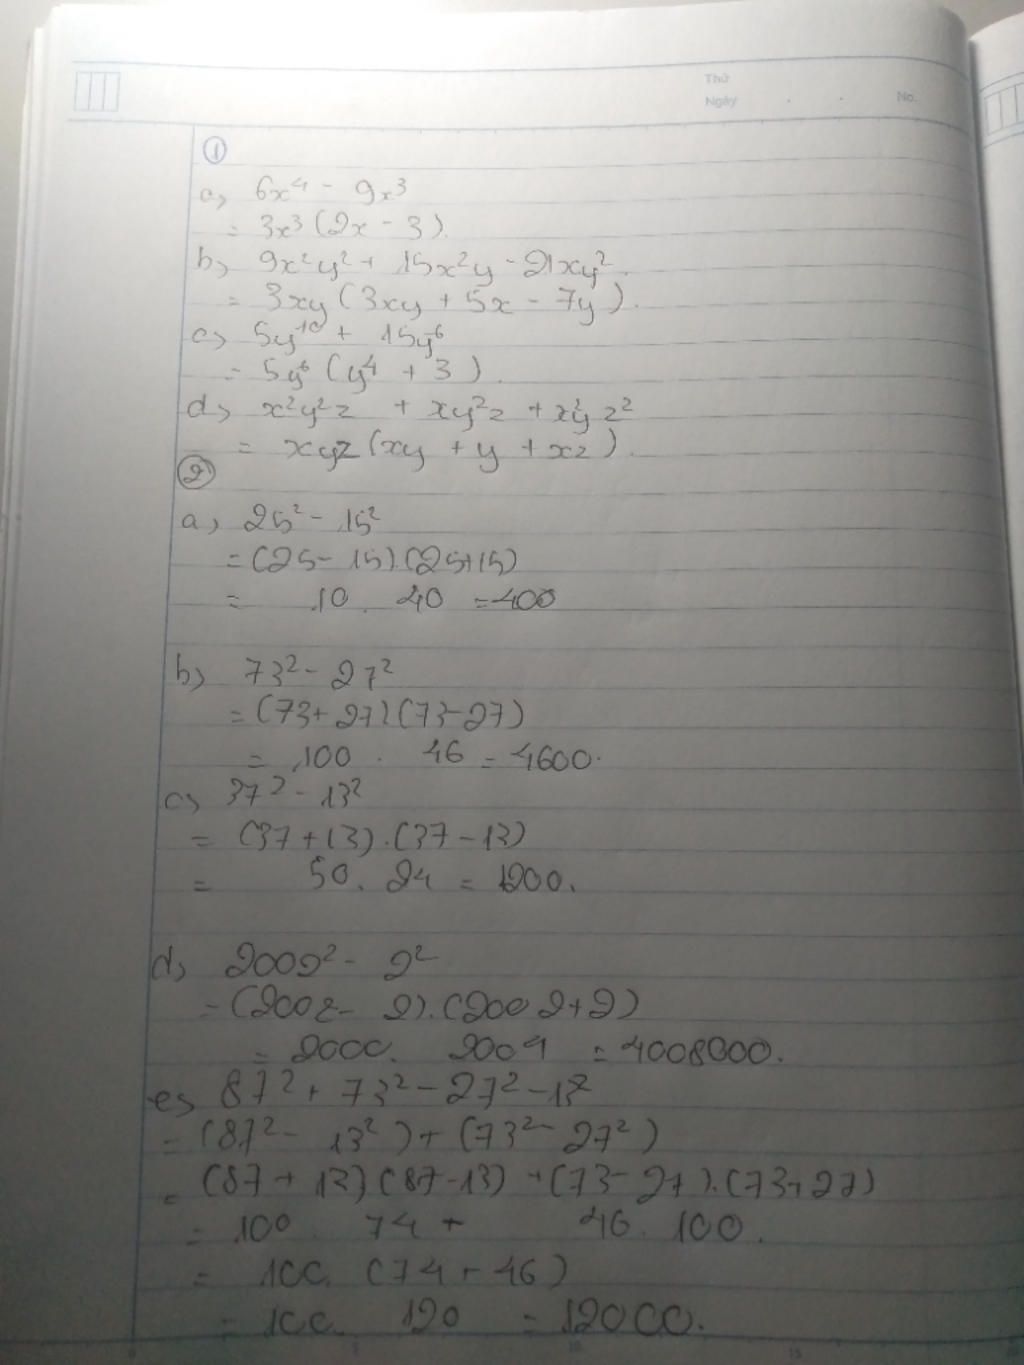 Thứ
Ngày . . No.
①
a, 6x⁴ - 9x³
= 3x³ (2x - 3).
b, 9x²y² + 15x²y - 21xy².
= 3xy (3xy + 5x - 7y).
c, 5y¹⁰ + 15y⁶
= 5y⁶ (y⁴ + 3).
d, x²y²z + xy²z + x²yz²
= xyz (xy + y + xz).
②
a, 25² - 15²
= (25 - 15).(25+15)
= 10 . 40 = 400
b, 73² - 27²
= (73 + 27)(73-27)
= 100 . 46 = 4600.
c, 37² - 13²
= (37 + 13).(37 - 13)
= 50. 24 = 1200.
d, 2002² - 2²
= (2002 - 2).(2002+2)
= 2000. 2004 = 4008000.
e, 87² + 73² - 27² - 13²
= (87² - 13²) + (73² - 27²)
= (87 + 13)(87-13) + (73 - 27).(73+27)
= 100 . 74 + 46. 100.
= 100. (74 + 46)
= 100. 120 = 12000.
0 5 10 15 20